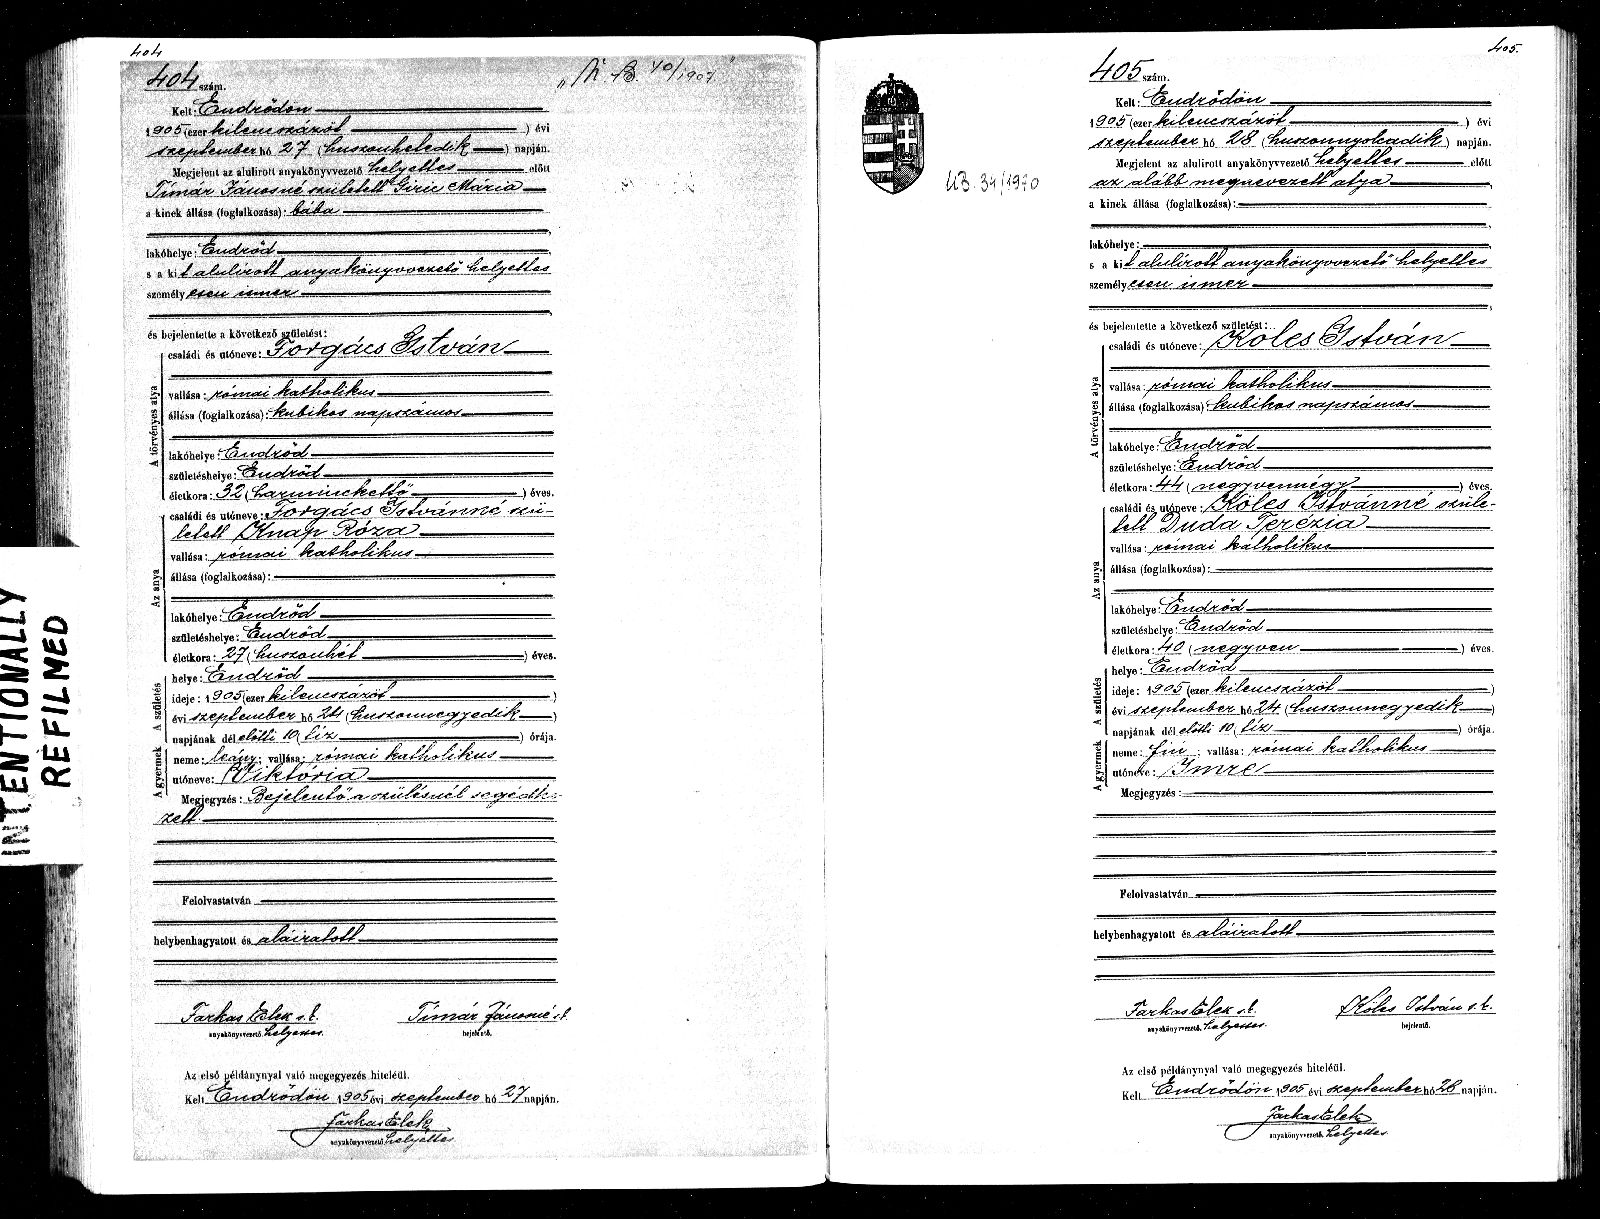 404
404 szám.
Kelt: Endrődön
1905 (ezer kilencszázöt) évi
szeptember hó 27 (huszonhetedik) napján.
Megjelent az alulirott anyakönyvvezető helyettes előtt
Tímár Jánosné született Giric Mária
a kinek állása (foglalkozása): bába
lakóhelye: Endrőd
s a kit alulirott anyakönyvvezető helyettes
személyesen ismer
és bejelentette a következő születést:
A törvényes atya
családi és utóneve: Forgács István
vallása: római katholikus
állása (foglalkozása): kubikos napszámos
lakóhelye: Endrőd
születéshelye: Endrőd
életkora: 32 (harminckettő) éves.
Az anya
családi és utóneve: Forgács Istvánné szü-
letett Knap Róza
vallása: római katholikus
állása (foglalkozása):
lakóhelye: Endrőd
születéshelye: Endrőd
életkora: 27 (huszonhét) éves.
A születés
helye: Endrőd
ideje: 1905 (ezer kilencszázöt)
évi szeptember hó 24 (huszonnegyedik)
napjának dél előtti 10 (tíz) órája.
A gyermek
neme: leány; vallása: római katholikus
utóneve: Viktória
Megjegyzés: Bejelentő a szülésnél segédke-
zett.
Felolvastatván
helybenhagyatott és aláiratott
Farkas Elek s.k. Tímár Jánosné s.k.
anyakönyvvezető helyettes. bejelentő.
Az első példánynyal való megegyezés hiteléül.
Kelt Endrődön 1905 évi szeptember hó 27 napján.
Farkas Elek
anyakönyvvezető helyettes
40/1907
INTENTIONALLY
REFILMED
405.
405 szám.
Kelt: Endrődön
1905 (ezer kilencszázöt) évi
szeptember hó 28 (huszonnyolcadik) napján.
Megjelent az alulirott anyakönyvvezető helyettes előtt
az alább megnevezett atya
a kinek állása (foglalkozása):
lakóhelye:
s a kit alulirott anyakönyvvezető helyettes
személyesen ismer
UB. 34/1970
és bejelentette a következő születést:
A törvényes atya
családi és utóneve: Köles István
vallása: római katholikus
állása (foglalkozása): kubikos napszámos
lakóhelye: Endrőd
születéshelye: Endrőd
életkora: 44 (negyvennégy) éves.
Az anya
családi és utóneve: Köles Istvánné szüle-
tett Duda Terézia
vallása: római katholikus
állása (foglalkozása):
lakóhelye: Endrőd
születéshelye: Endrőd
életkora: 40 (negyven) éves.
A születés
helye: Endrőd
ideje: 1905 (ezer kilencszázöt)
évi szeptember hó 24 (huszonnegyedik)
napjának dél előtti 10 (tíz) órája.
A gyermek
neme: fiu; vallása: római katholikus
utóneve: Imre
Megjegyzés:
Felolvastatván
helybenhagyatott és aláiratott
Farkas Elek s.k. Köles István s.k.
anyakönyvvezető. helyettes. bejelentő.
Az első példánynyal való megegyezés hiteléül.
Kelt Endrődön 1905 évi szeptember hó 28 napján.
Farkas Elek
anyakönyvvezető helyettes